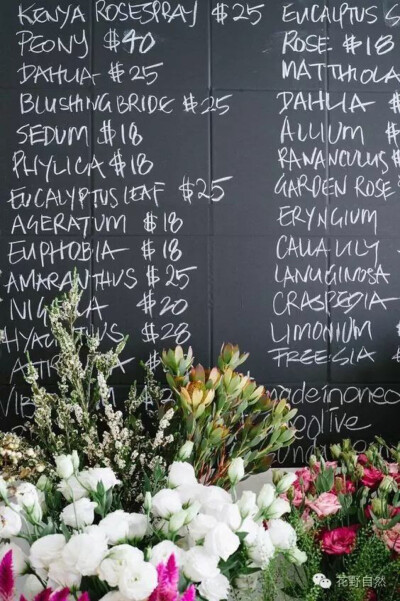 KENYA ROSESPRAY $25
PEONY $40
DAHLIA $25
BLUSHING BRIDE $25
SEDUM $18
PHYLICA $18
EUCALYPTUS LEAF $25
AGERATUM $18
EUPHOBIA $18
AMARANTHUS $25
NIGELLA $20
$28
EUCALIPTUS S
ROSE $18
MATTHIOLA
DAHLIA $
ALLIUM $
RANANCULUS $
GARDEN ROSE $
ERYNGIUM
CALLA LILY
LANUGINOSA
CRASPEDIA
LIMONIUM
FREESIA
madeinoneo
olive
花野自然